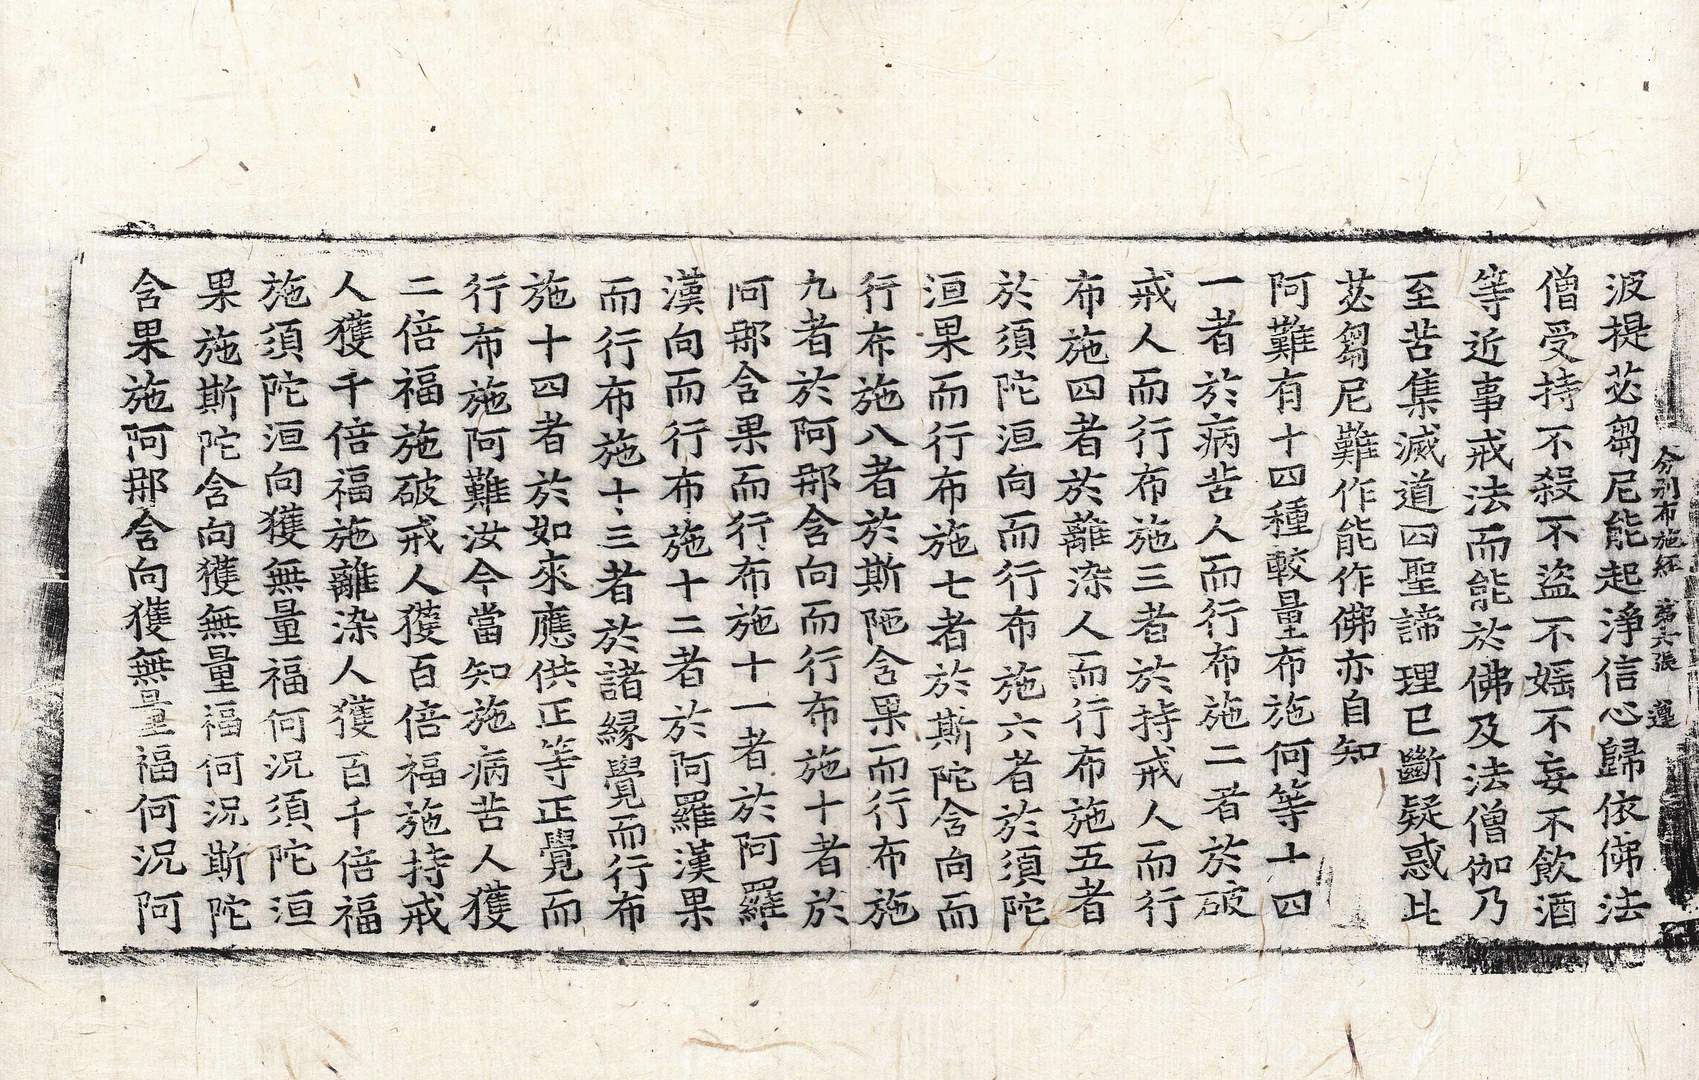 分別布施経 第六張 蓮
波提苾芻尼能起淨信心歸依佛法
僧受持不殺不盜不婬不妄不飲酒
等近事戒法而能於佛及法僧伽乃
至苦集滅道四聖諦理已斷疑惑此
苾芻尼難作能作佛亦自知
阿難有十四種較量布施何等十四
一者於病苦人而行布施二者於破
戒人而行布施三者於持戒人而行
布施四者於離染人而行布施五者
於須陀洹向而行布施六者於須陀
洹果而行布施七者於斯陀含向而
行布施八者於斯陁含果而行布施
九者於阿那含向而行布施十者於
阿那含果而行布施十一者於阿羅
漢向而行布施十二者於阿羅漢果
而行布施十三者於諸緣覺而行布
施十四者於如來應供正等正覺而
行布施阿難汝今當知施病苦人獲
二倍福施破戒人獲百倍福施持戒
人獲千倍福施離染人獲百千倍福
施須陀洹向獲無量福何況須陀洹
果施斯陀含向獲無量福何況斯陀
含果施阿那含向獲無量福何況阿